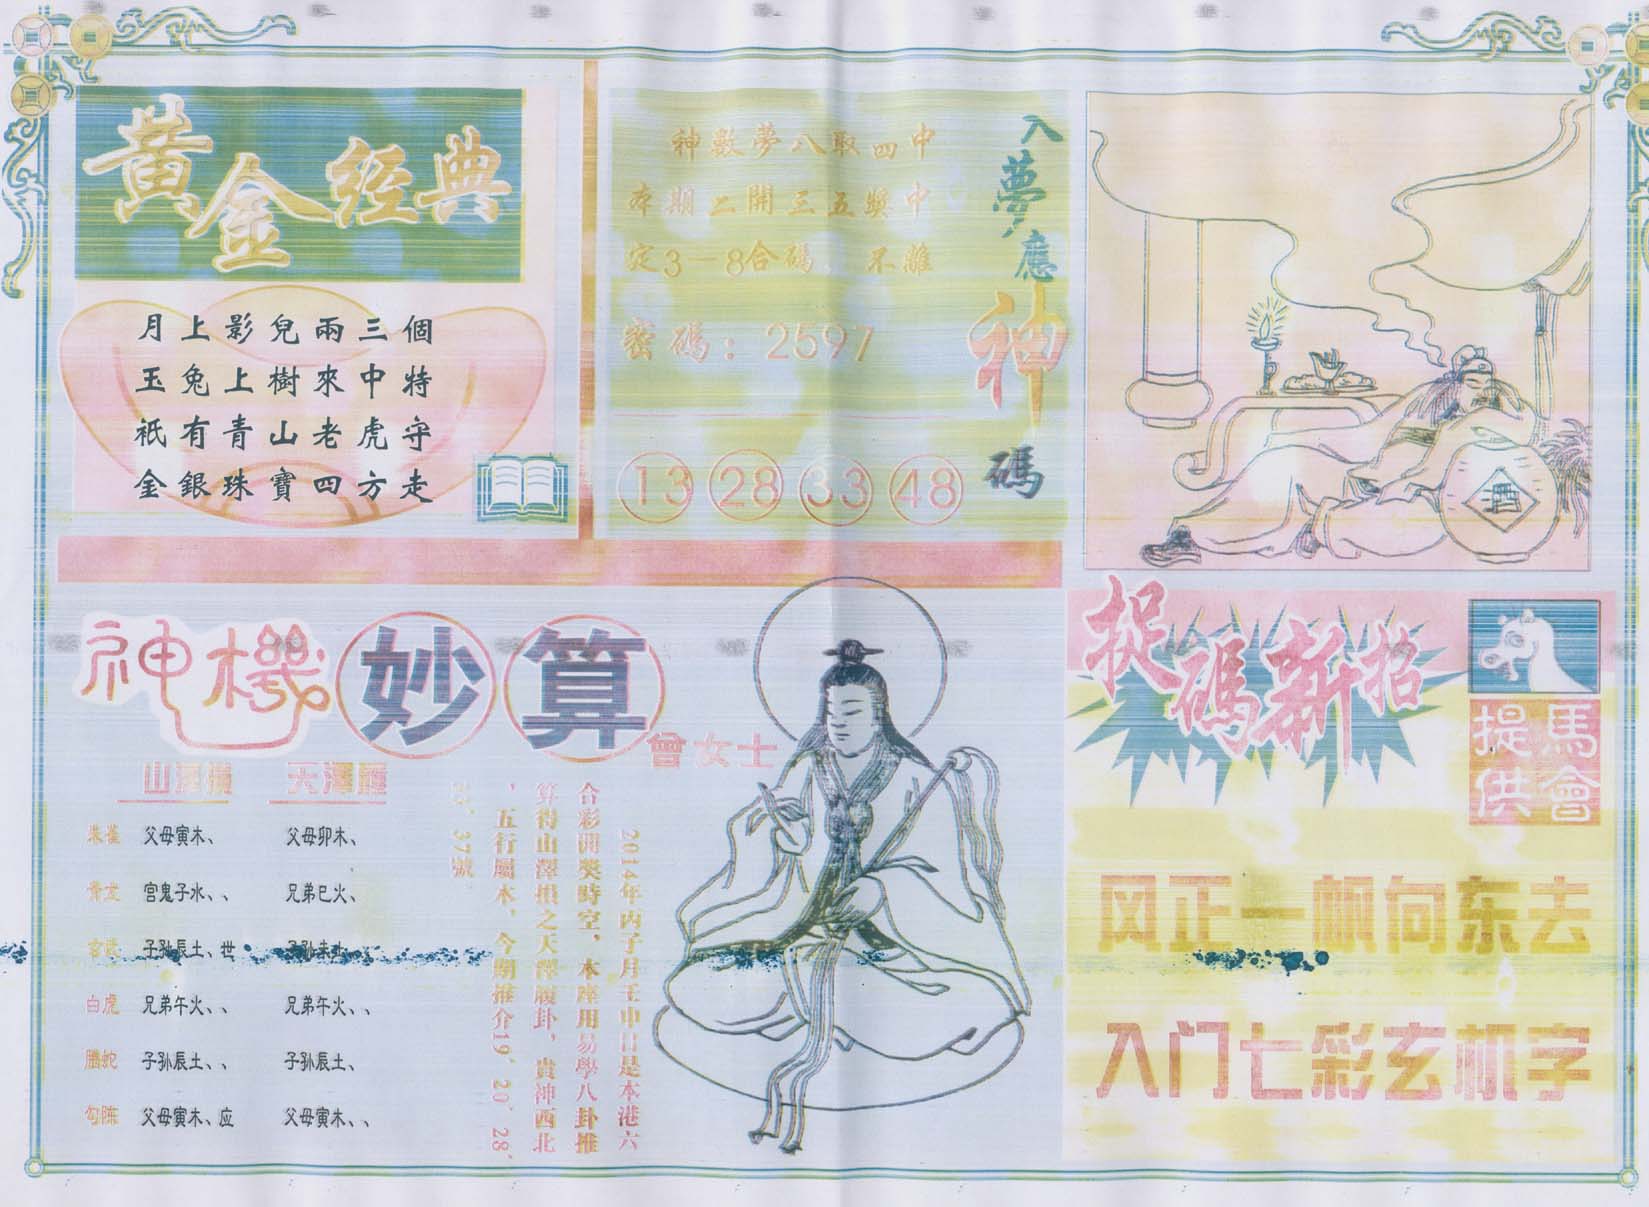 黃金經典
月上影兒兩三個
玉兔上樹來中特
祇有青山老虎守
金銀珠寶四方走
神數夢八取四中
本期二開三五獎中
定3－8合碼，不離
密碼：2597
13 28 33 48
入夢應神碼
酒
神機妙算
曾女士
山澤損 天澤履
朱雀 父母寅木、 父母卯木、
青龙 官鬼子水、、 兄弟巳火、
子孙辰土、世 子孙未土、、
白虎 兄弟午火、、 兄弟午火、、
騰蛇 子孙辰土、、 子孙辰土、
勾陈 父母寅木、应 父母寅木、、
2014年丙子月壬申日是本港六
合彩開獎時空，本座用易學八卦推
算得山澤損之天澤履卦，貴神西北
，五行屬木，今期推介19´20´28´
37號
捉碼新招
馬會
提供
风正一帆向东去
入门七彩玄机字